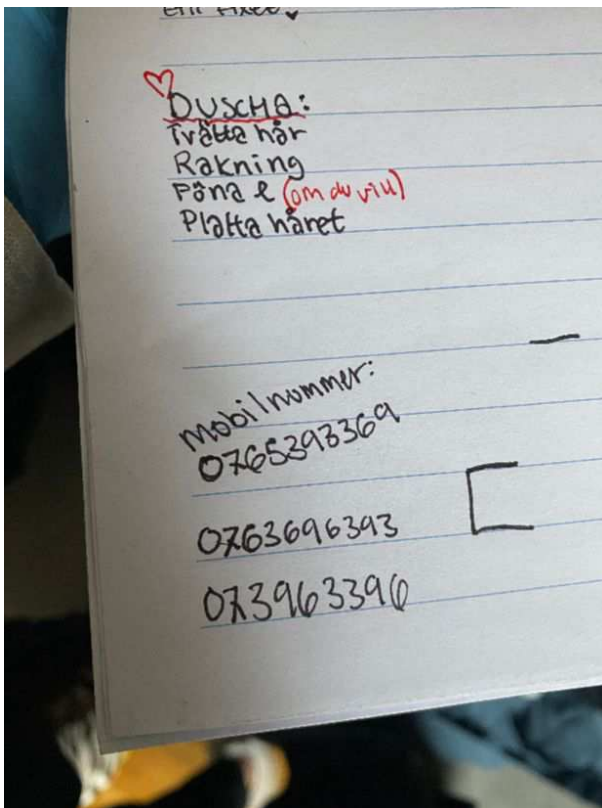 DUSCHA:
Tvätta hår
Rakning
Föna e (om du vill)
Platta håret
mobilnummer:
0765393369
0763696393
073963396